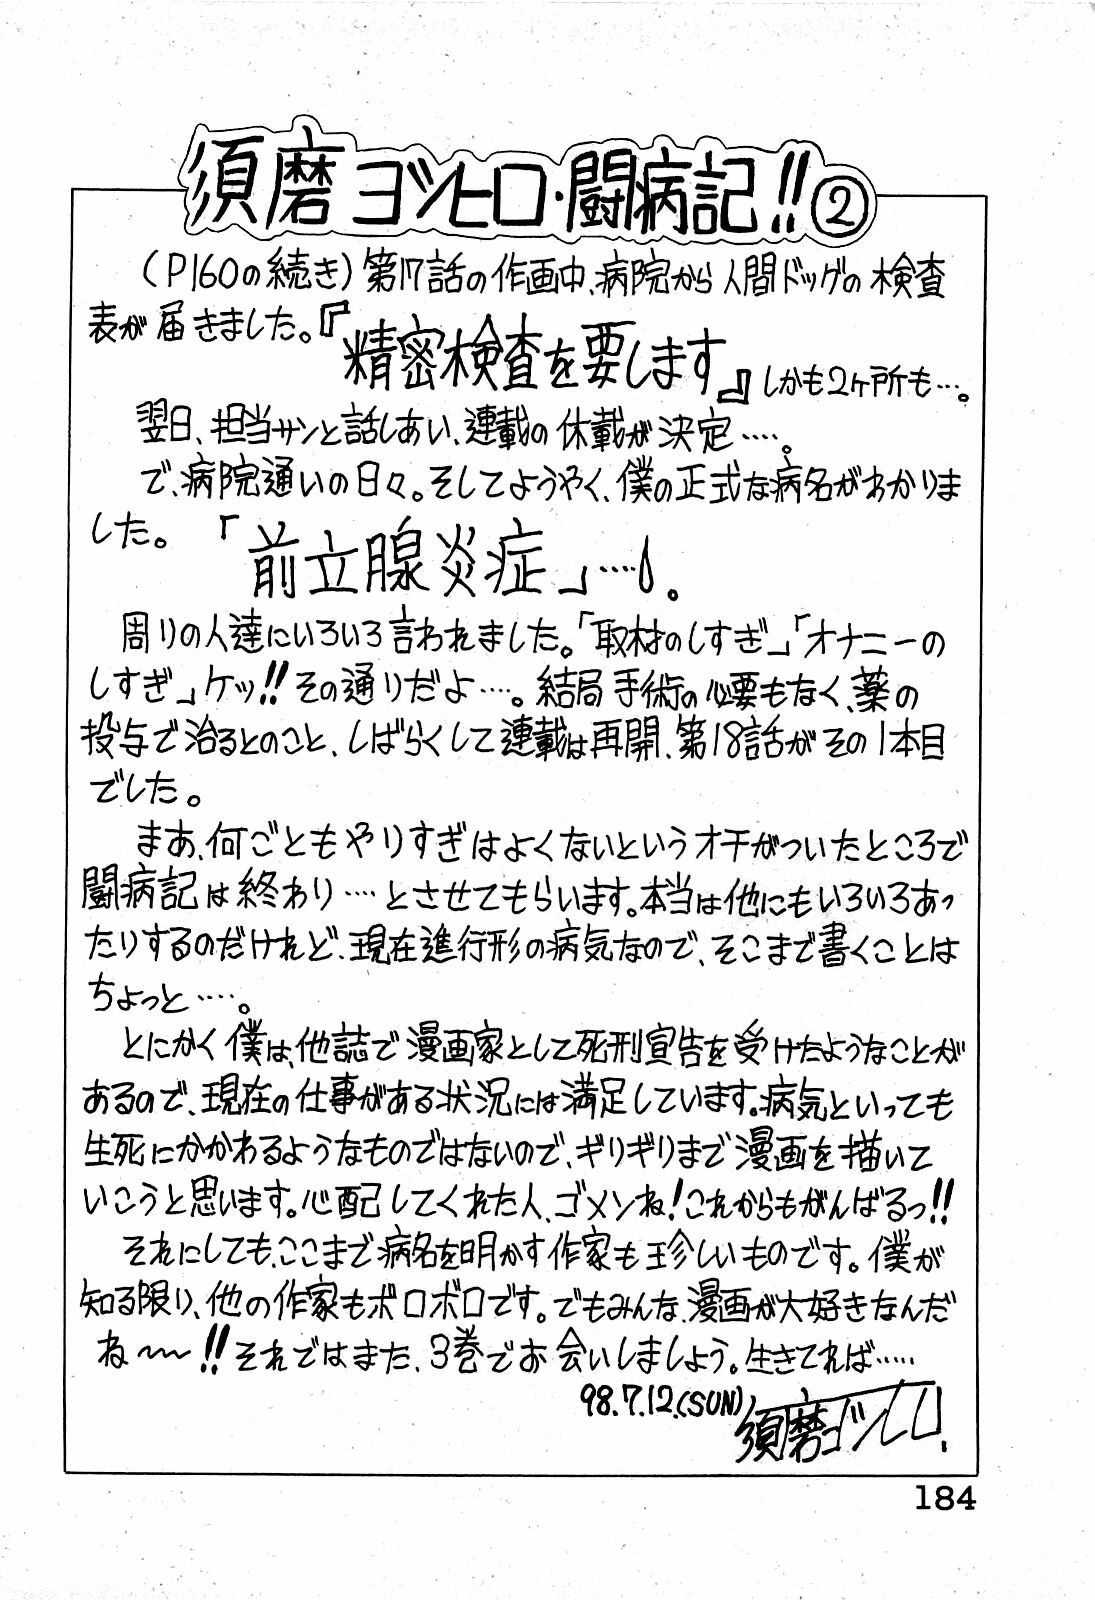 須磨ヨシヒロ・闘病記!!②
(P160の続き)第17話の作画中、病院から人間ドッグの検査
表が届きました。『精密検査を要します』しかも2ヶ所も…。
翌日、担当サンと話しあい、連載の休載が決定……。
で、病院通いの日々。そしてようやく、僕の正式な病名がわかりま
した。「前立腺炎症」……。
周りの人達にいろいろ言われました。「取材のしすぎ」「オナニーの
しすぎ」ケッ!!その通りだよ……。結局手術の必要もなく、薬の
投与で治るとのこと、しばらくして連載は再開、第18話がその1本目
でした。
まあ、何ごともやりすぎはよくないというオチがついたところで
闘病記は終わり……とさせてもらいます。本当は他にもいろいろあっ
たりするのだけれど、現在進行形の病気なので、そこまで書くことは
ちょっと……。
とにかく僕は、他誌で漫画家として死刑宣告を受けたようなことが
あるので、現在の仕事がある状況には満足しています。病気といっても
生死にかかわるようなものではないので、ギリギリまで漫画を描いて
いこうと思います。心配してくれた人、ゴメンね!これからもがんばるっ!!
それにしても、ここまで病名を明かす作家も珍しいものです。僕が
知る限り、他の作家もボロボロです。でもみんな、漫画が大好きなんだ
ね〜〜!!それではまた、3巻でお会いしましょう。生きてれば……
98.7.12.(SUN)
須磨ヨシヒロ.
184